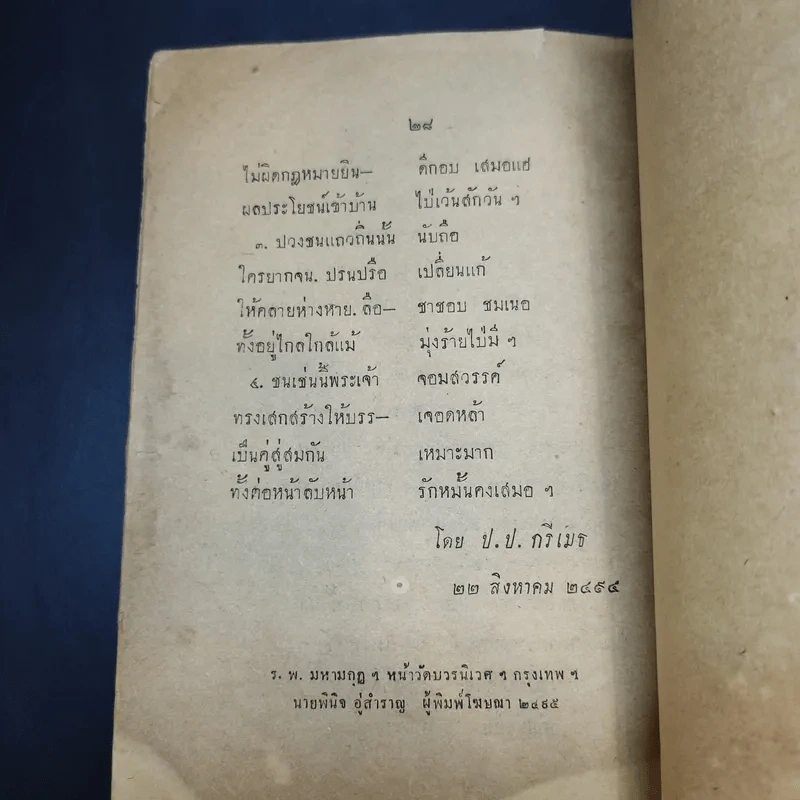 ๒๘
ไม่ผิดกฎหมายยิน— ดีกอบ เสมอแฮ
ผลประโยชน์เข้าบ้าน ไป่เว้นสักวัน ฯ
๓. ปวงชนแถวถิ่นนั้น นับถือ
ใครยากจน. ปรนปรือ เปลี่ยนแก้
ให้คลายห่างหาย. ลือ— ชาชอบ ชมเนอ
ทั้งอยู่ไกลใกล้แม้ มุ่งร้ายไป่มี ฯ
๔. ชนเช่นนี้พระเจ้า จอมสวรรค์
ทรงเสกสร้างให้บรร— เจอดหล้า
เป็นคู่สู่สมกัน เหมาะมาก
ทั้งต่อหน้าลับหน้า รักหมั้นคงเสมอ ฯ
โดย ป.ป. กรีเมธ
๒๒ สิงหาคม ๒๔๙๔
ร. พ. มหามกุฏ ฯ หน้าวัดบวรนิเวศ ฯ กรุงเทพ ฯ
นายพินิจ อู่สำราญ ผู้พิมพ์โฆษณา ๒๔๙๕